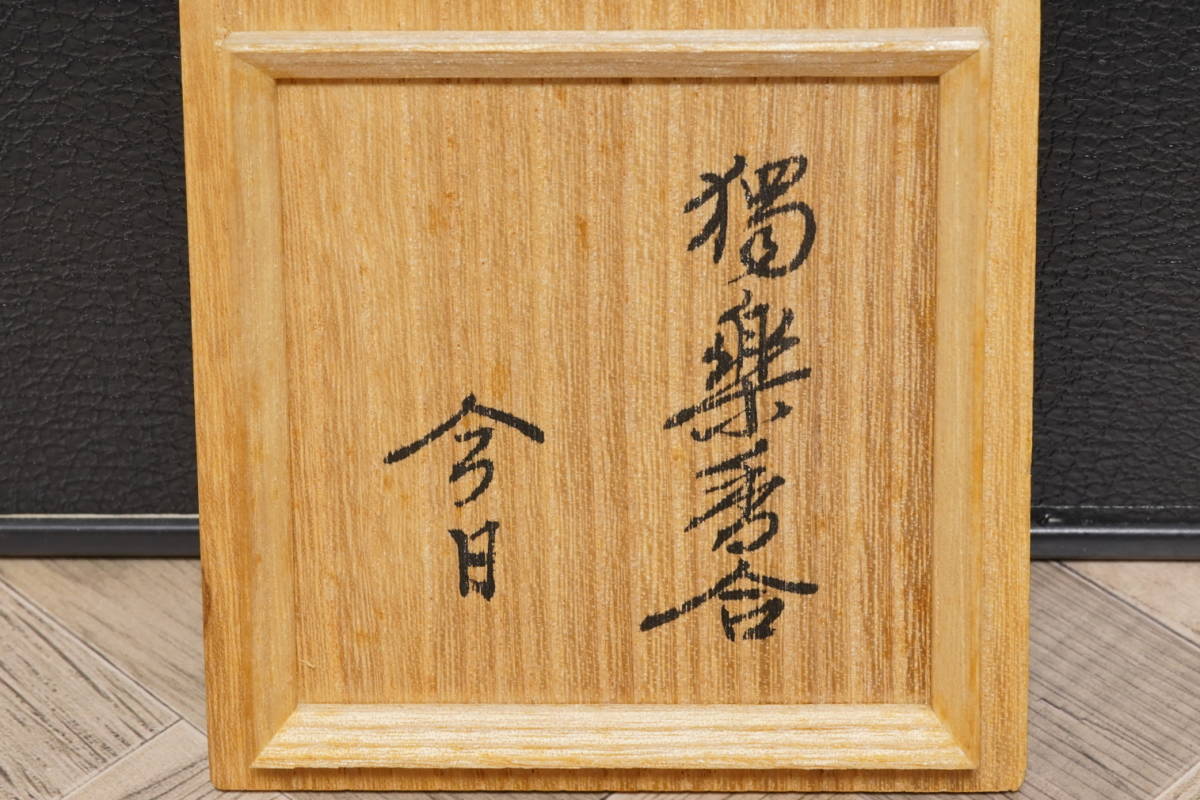 獨樂香合
今日